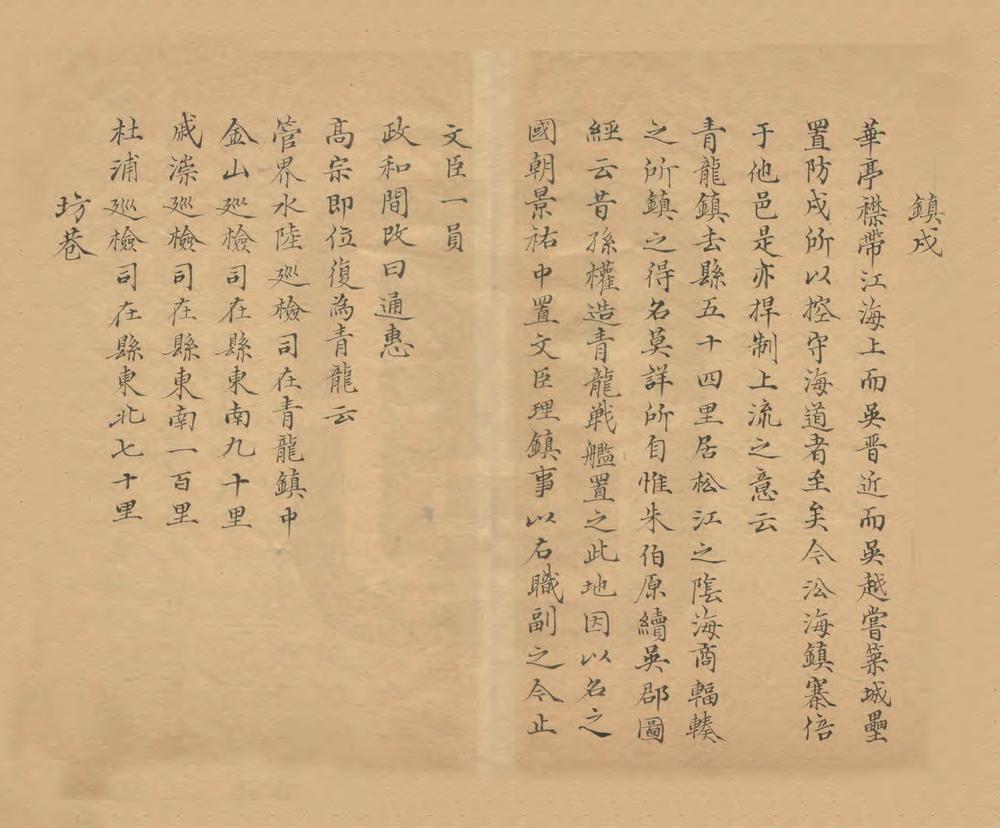 鎮戍
華亭襟帶江海上而吳晉近而吳越嘗築城壘
置防戍所以控守海道者至矣今㳂海鎮寨倍
于他邑是亦捍制上流之意云
青龍鎮去縣五十四里居松江之陰海商輻輳
之所鎮之得名莫詳所自惟朱伯原續吳郡圖
經云昔孫權造青龍戰艦置之此地因以名之
國朝景祐中置文臣理鎮事以右職副之今止
文臣一員
政和間改曰通惠
高宗即位復為青龍云
管界水陸巡檢司在青龍鎮中
金山巡檢司在縣東南九十里
戚漴巡檢司在縣東南一百里
杜浦巡檢司在縣東北七十里
坊巷